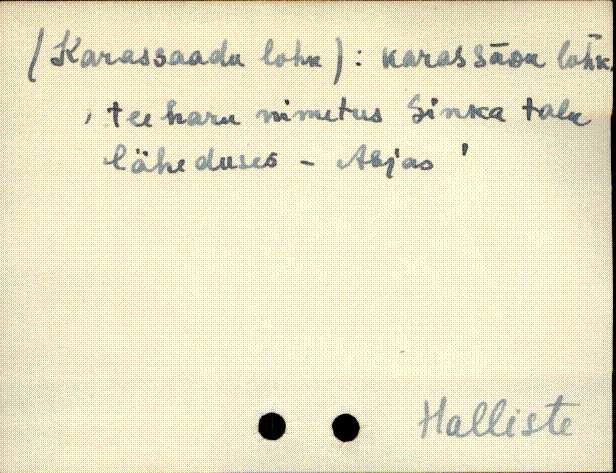 (Karassaadu lohu): karassāou lohk
' tee haru nimetus Sinka talu
läheduses - Abjas '
Halliste